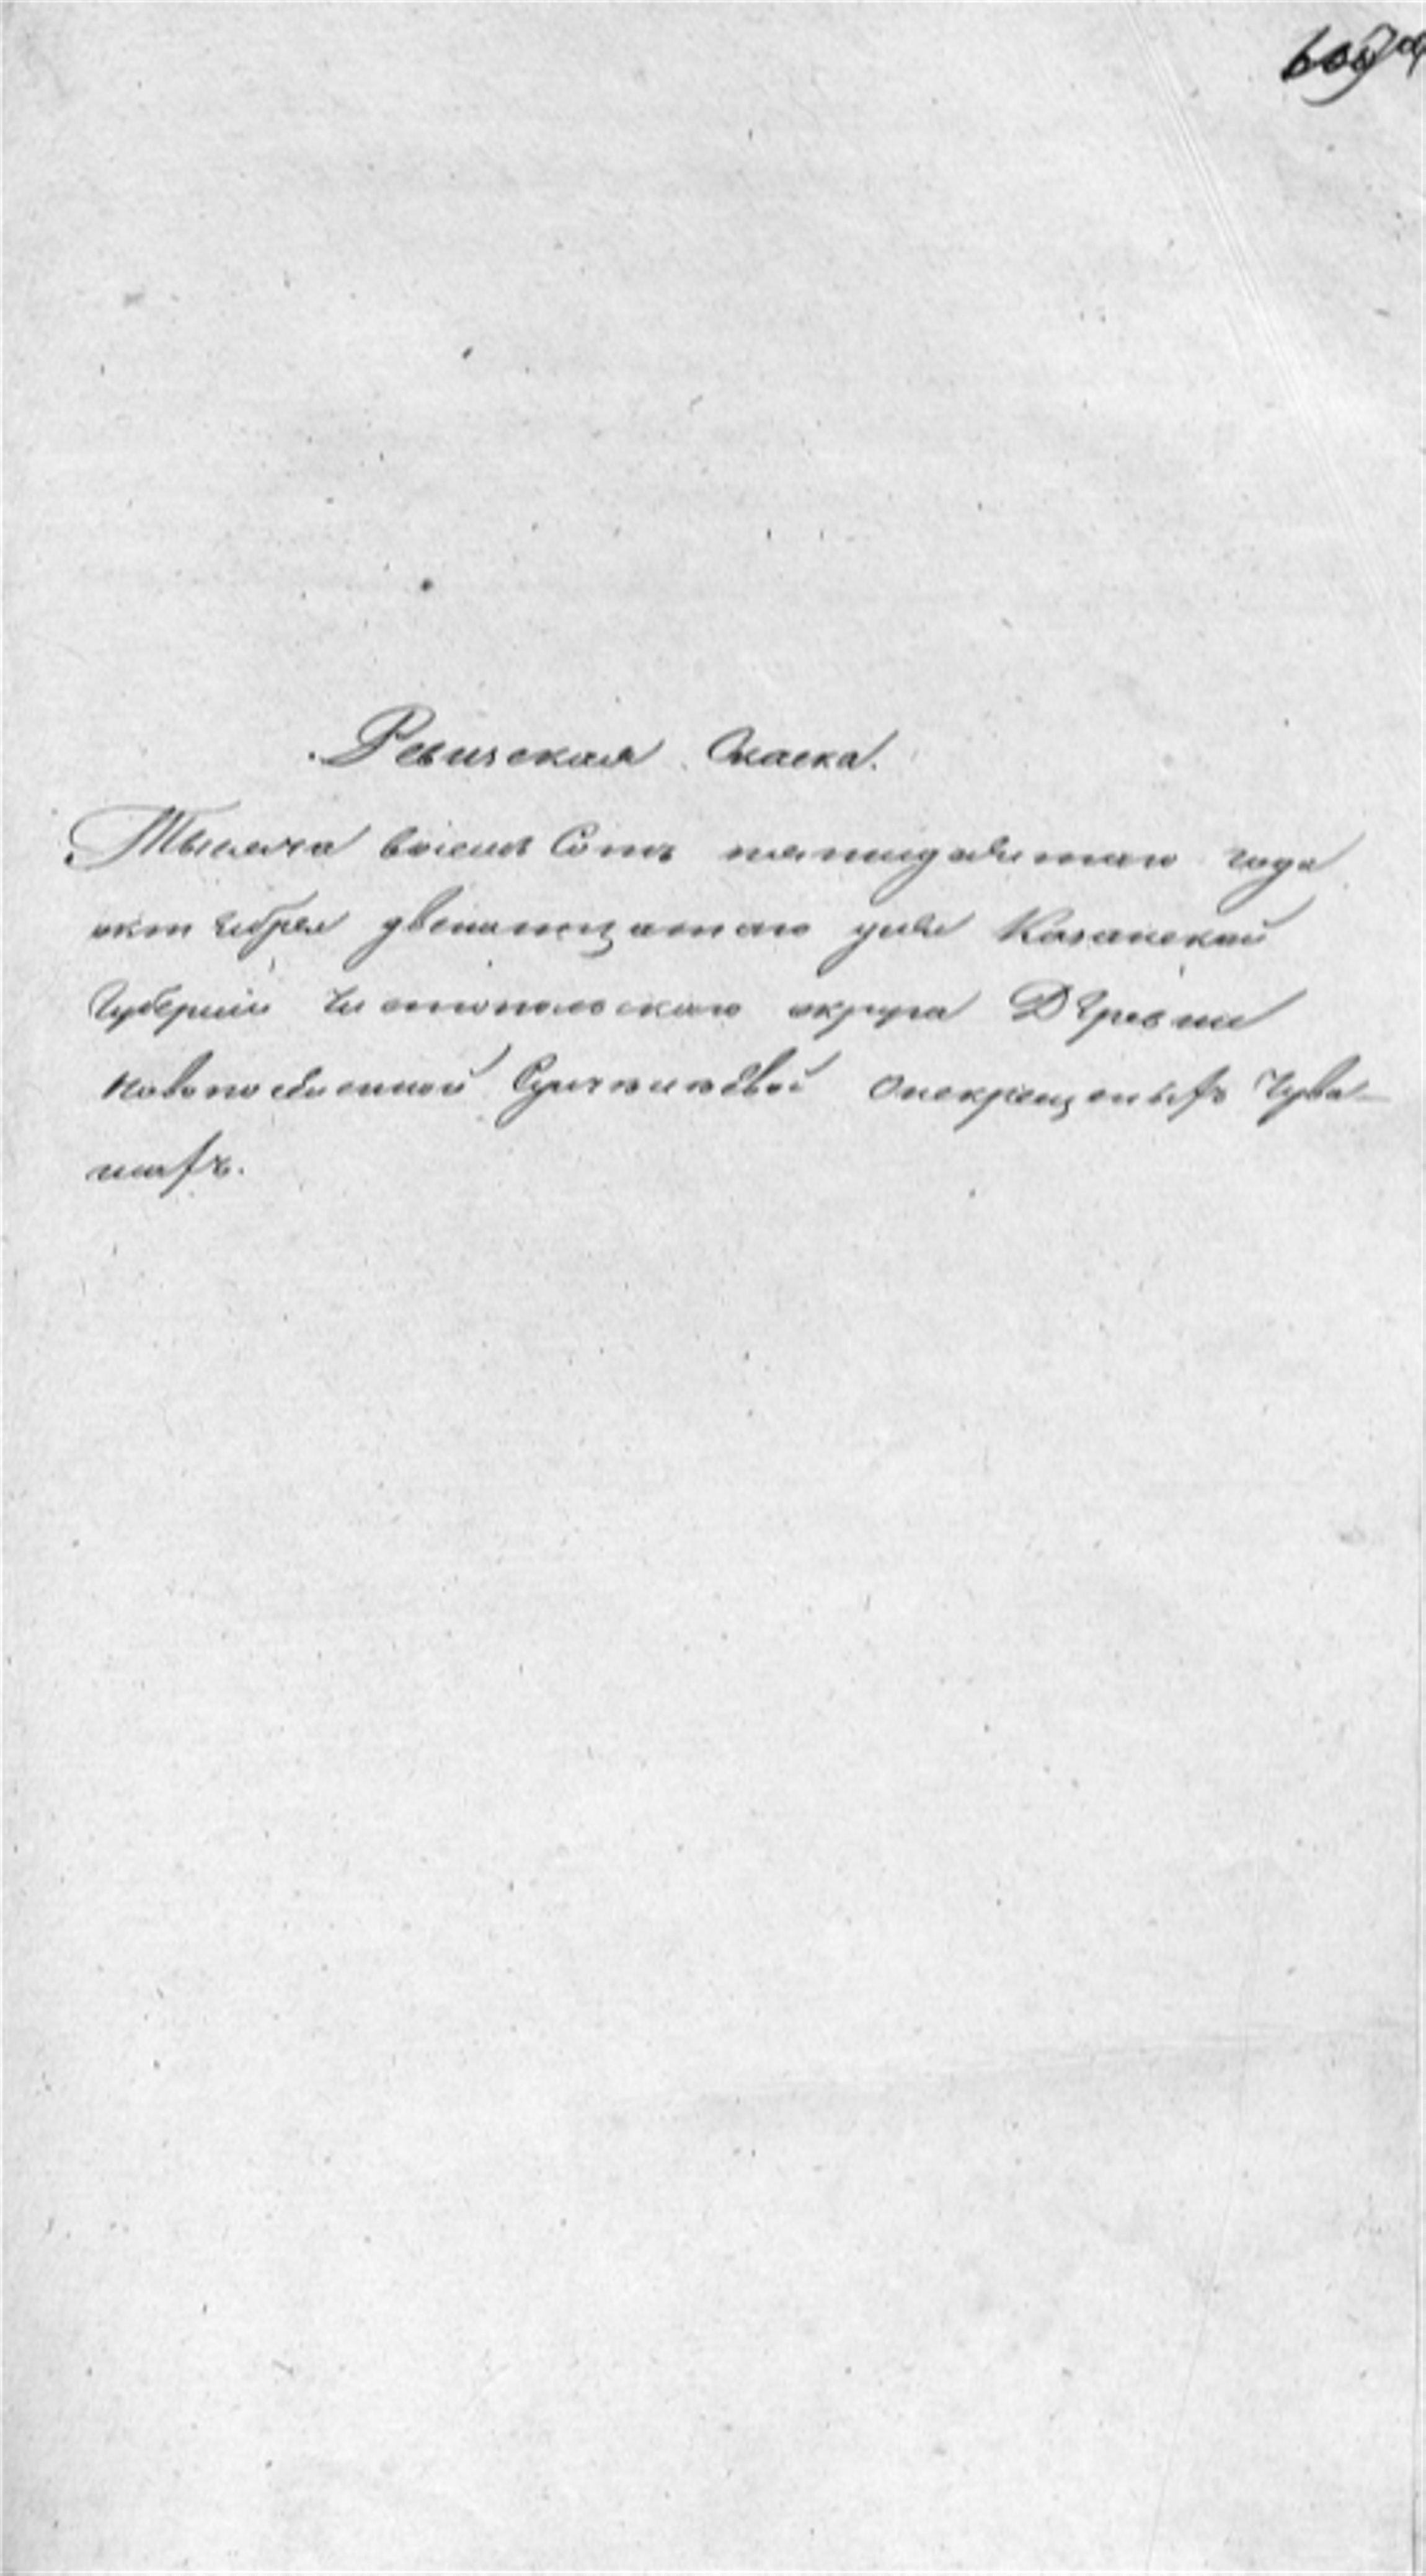 Ревизская Скаска.
Тысяча восемь Сотъ пятидесятаго года
октября двенатцатаго дня Казанской
Губерніи Чистопольскаго округа Деревни
новопоселенной о некрещеныхъ Чува-
шахъ.